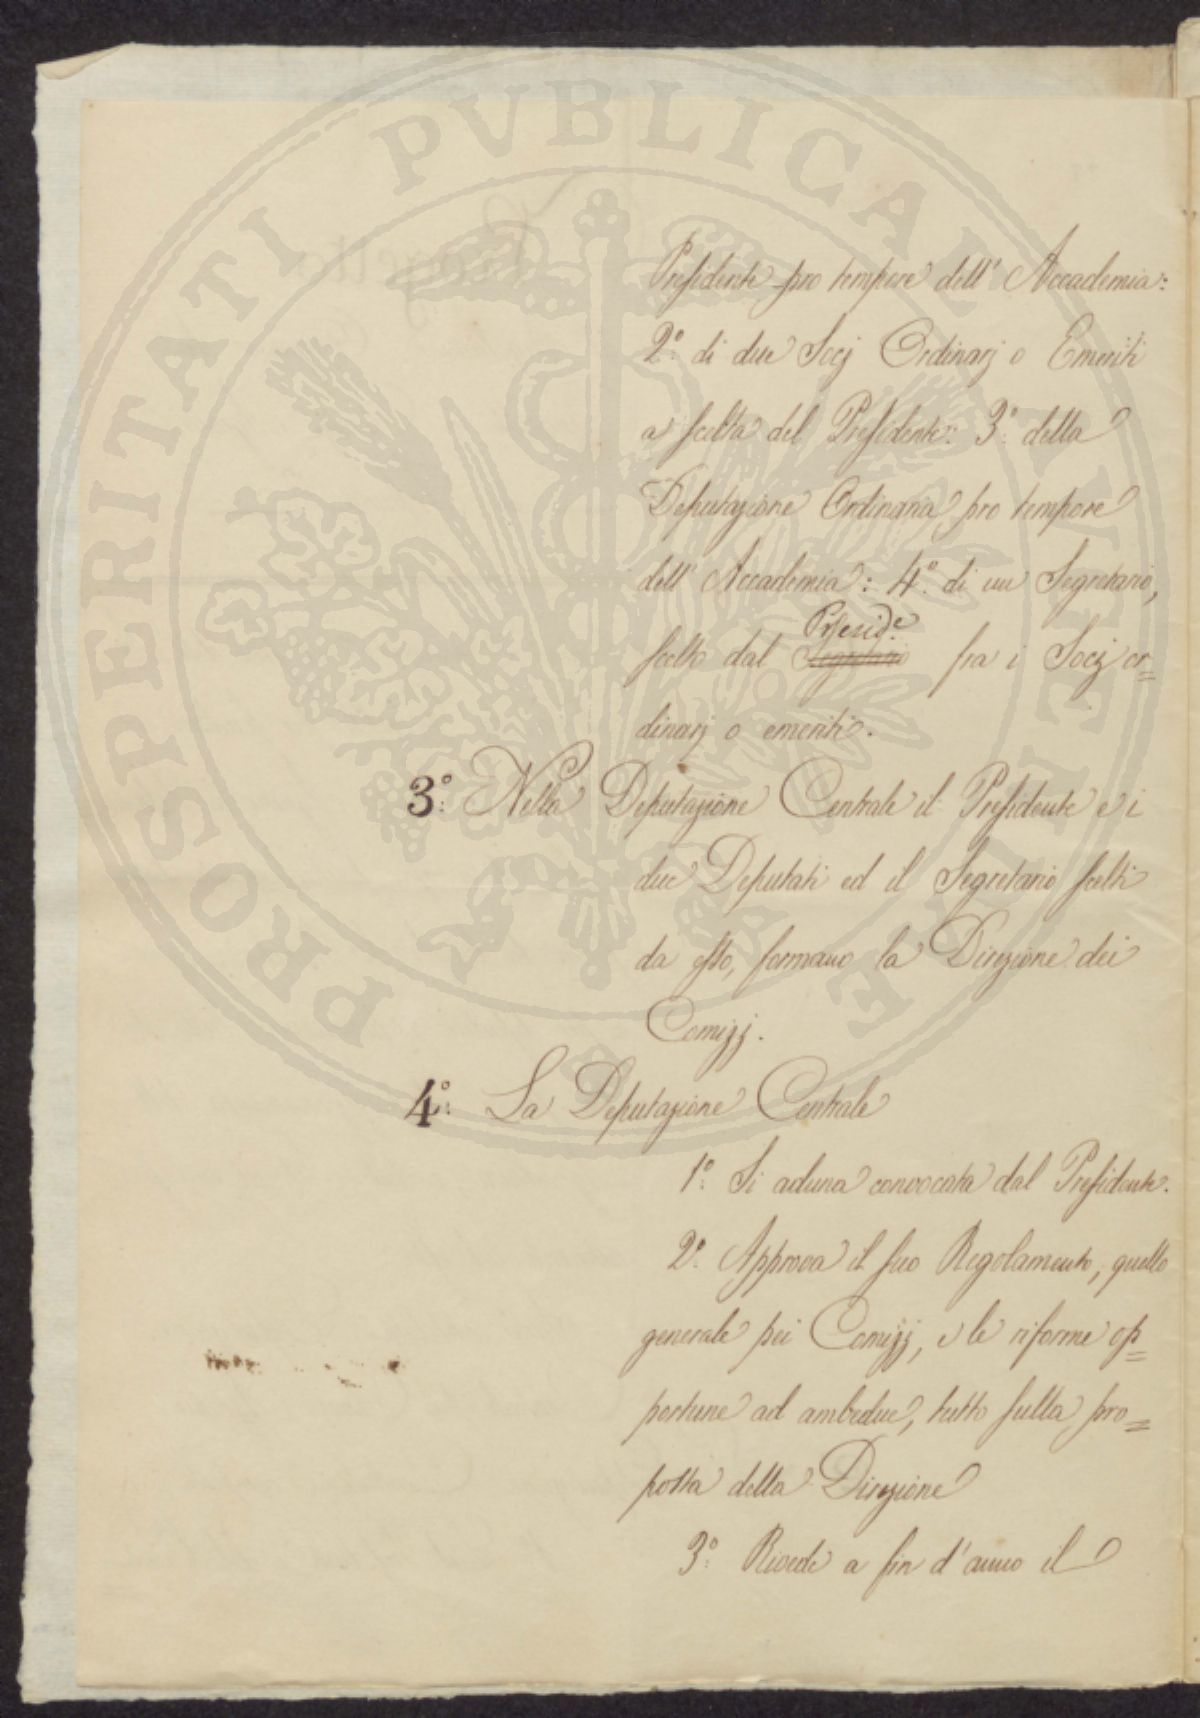 PROSPERITATI PVBLICAE AVGENDAE
Presidente pro tempore dell' Accademia:
2.º di due Socj Ordinarj o Emeriti
a scelta del Presidente: 3.º della
Deputazione Ordinaria pro tempore
dell' Accademia: 4.º di un Segretario,
Preside.
scelto dal Segretario fra i Socj or=
dinarj o emeriti.
3.º Nella Deputazione Centrale il Presidente e i
due Deputati ed il Segretario scelti
da esso, formano la Direzione dei
Comizj.
4.º La Deputazione Centrale
1.º Si aduna convocata dal Presidente.
2.º Approva il suo Regolamento, quello
generale pei Comizj, e le riforme op=
portune ad ambedue, tutto sulla pro=
posta della Direzione
3.º Rivede a fin d'anno il